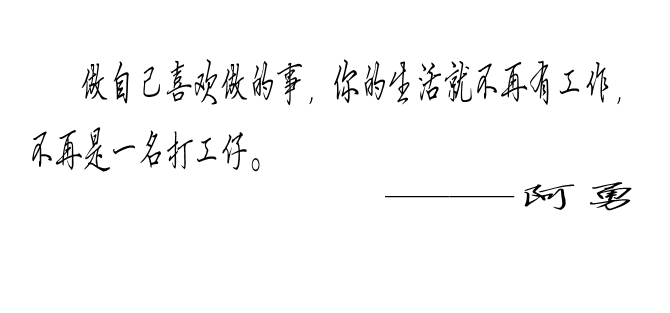 做自己喜欢做的事，你的生活就不再有工作，
不再是一名打工仔。
————阿勇